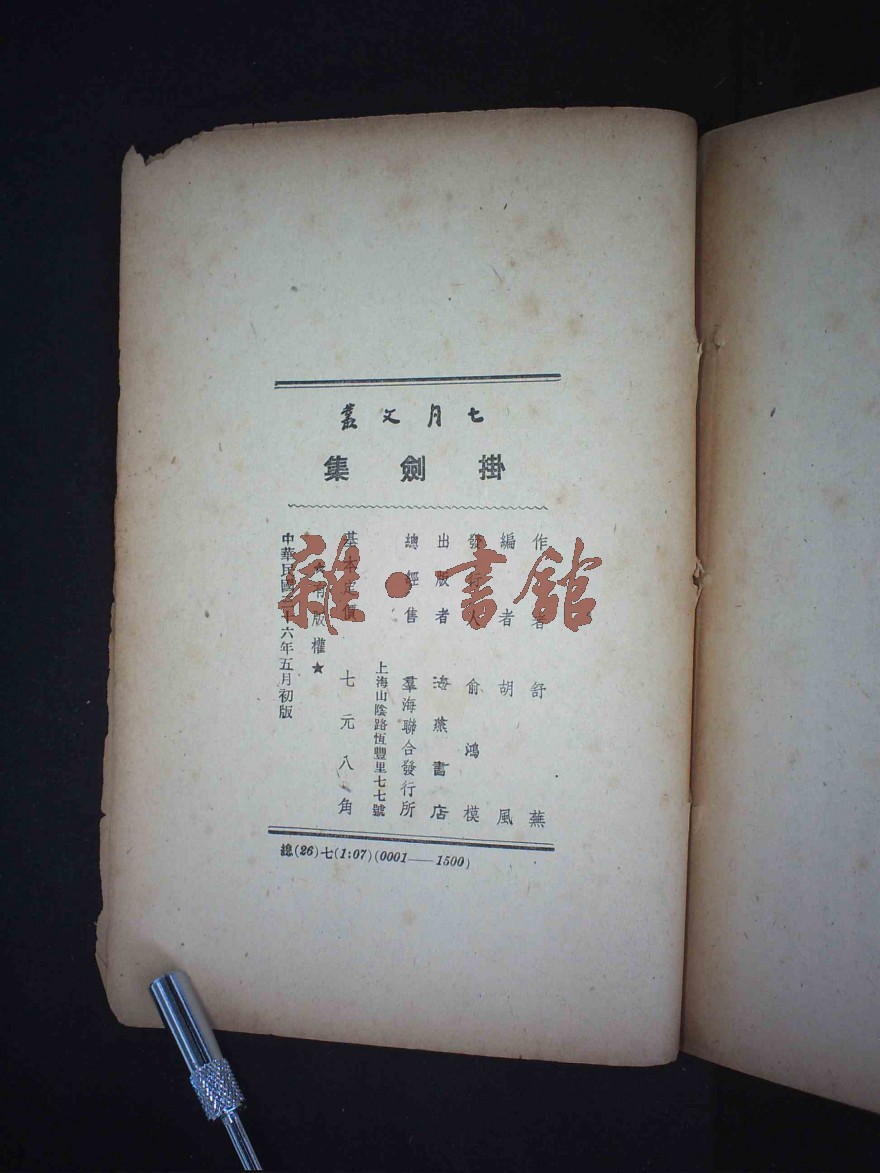 七月文叢
掛劍集
作者 舒蕪
編者 胡風
發行人 俞鴻模
出版者 海燕書店
總經售 羣海聯合發行所
上海山陰路恆豐里七七號
基本定價 七元八角
有版權★
中華民國三十六年五月初版
總(26)七(1:07)(0001——1500)
雜·書館